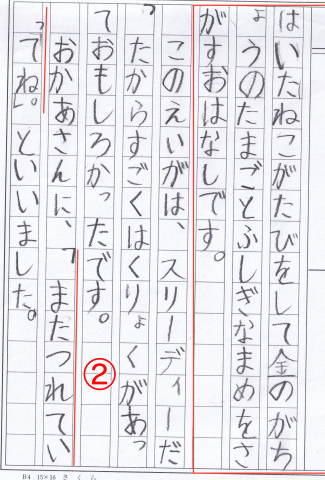 はいたねこがたびをして金のがち
ょうのたまごとふしぎなまめをさ
がすおはなしです。
このえいがは、スリーディーだ
ったからすごくはくりょくがあっ
ておもしろかったです。
②
おかあさんに、「またつれてい
ってね」。といいました。
B4 15×16 さくら